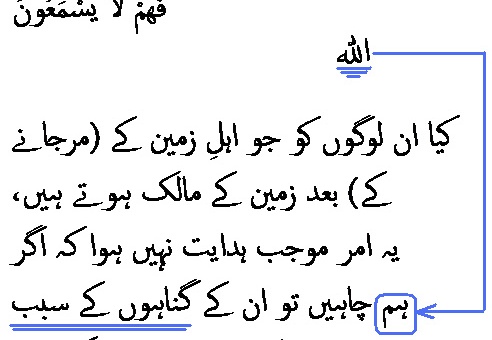 فَهُمْ لَا يَسْمَعُونَ
الله
کیا ان لوگوں کو جو اہلِ زمین کے (مرجانے
کے) بعد زمین کے مالک ہوتے ہیں،
یہ امر موجب ہدایت نہیں ہوا کہ اگر
ہم چاہیں تو ان کے گناہوں کے سبب